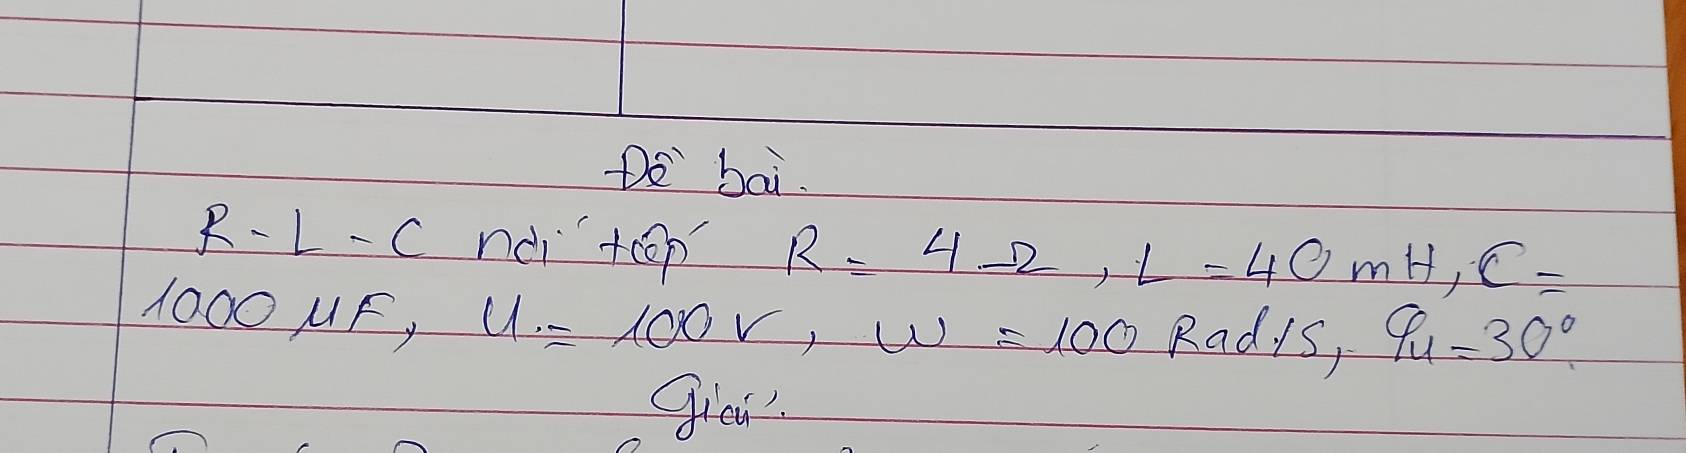 Đề bài.
R-L-C nối tiếp R = 4 Ω, L = 40 mH, C =
1000 µF, U = 100 V, W = 100 Rad/s, φu = 30°
Giải: